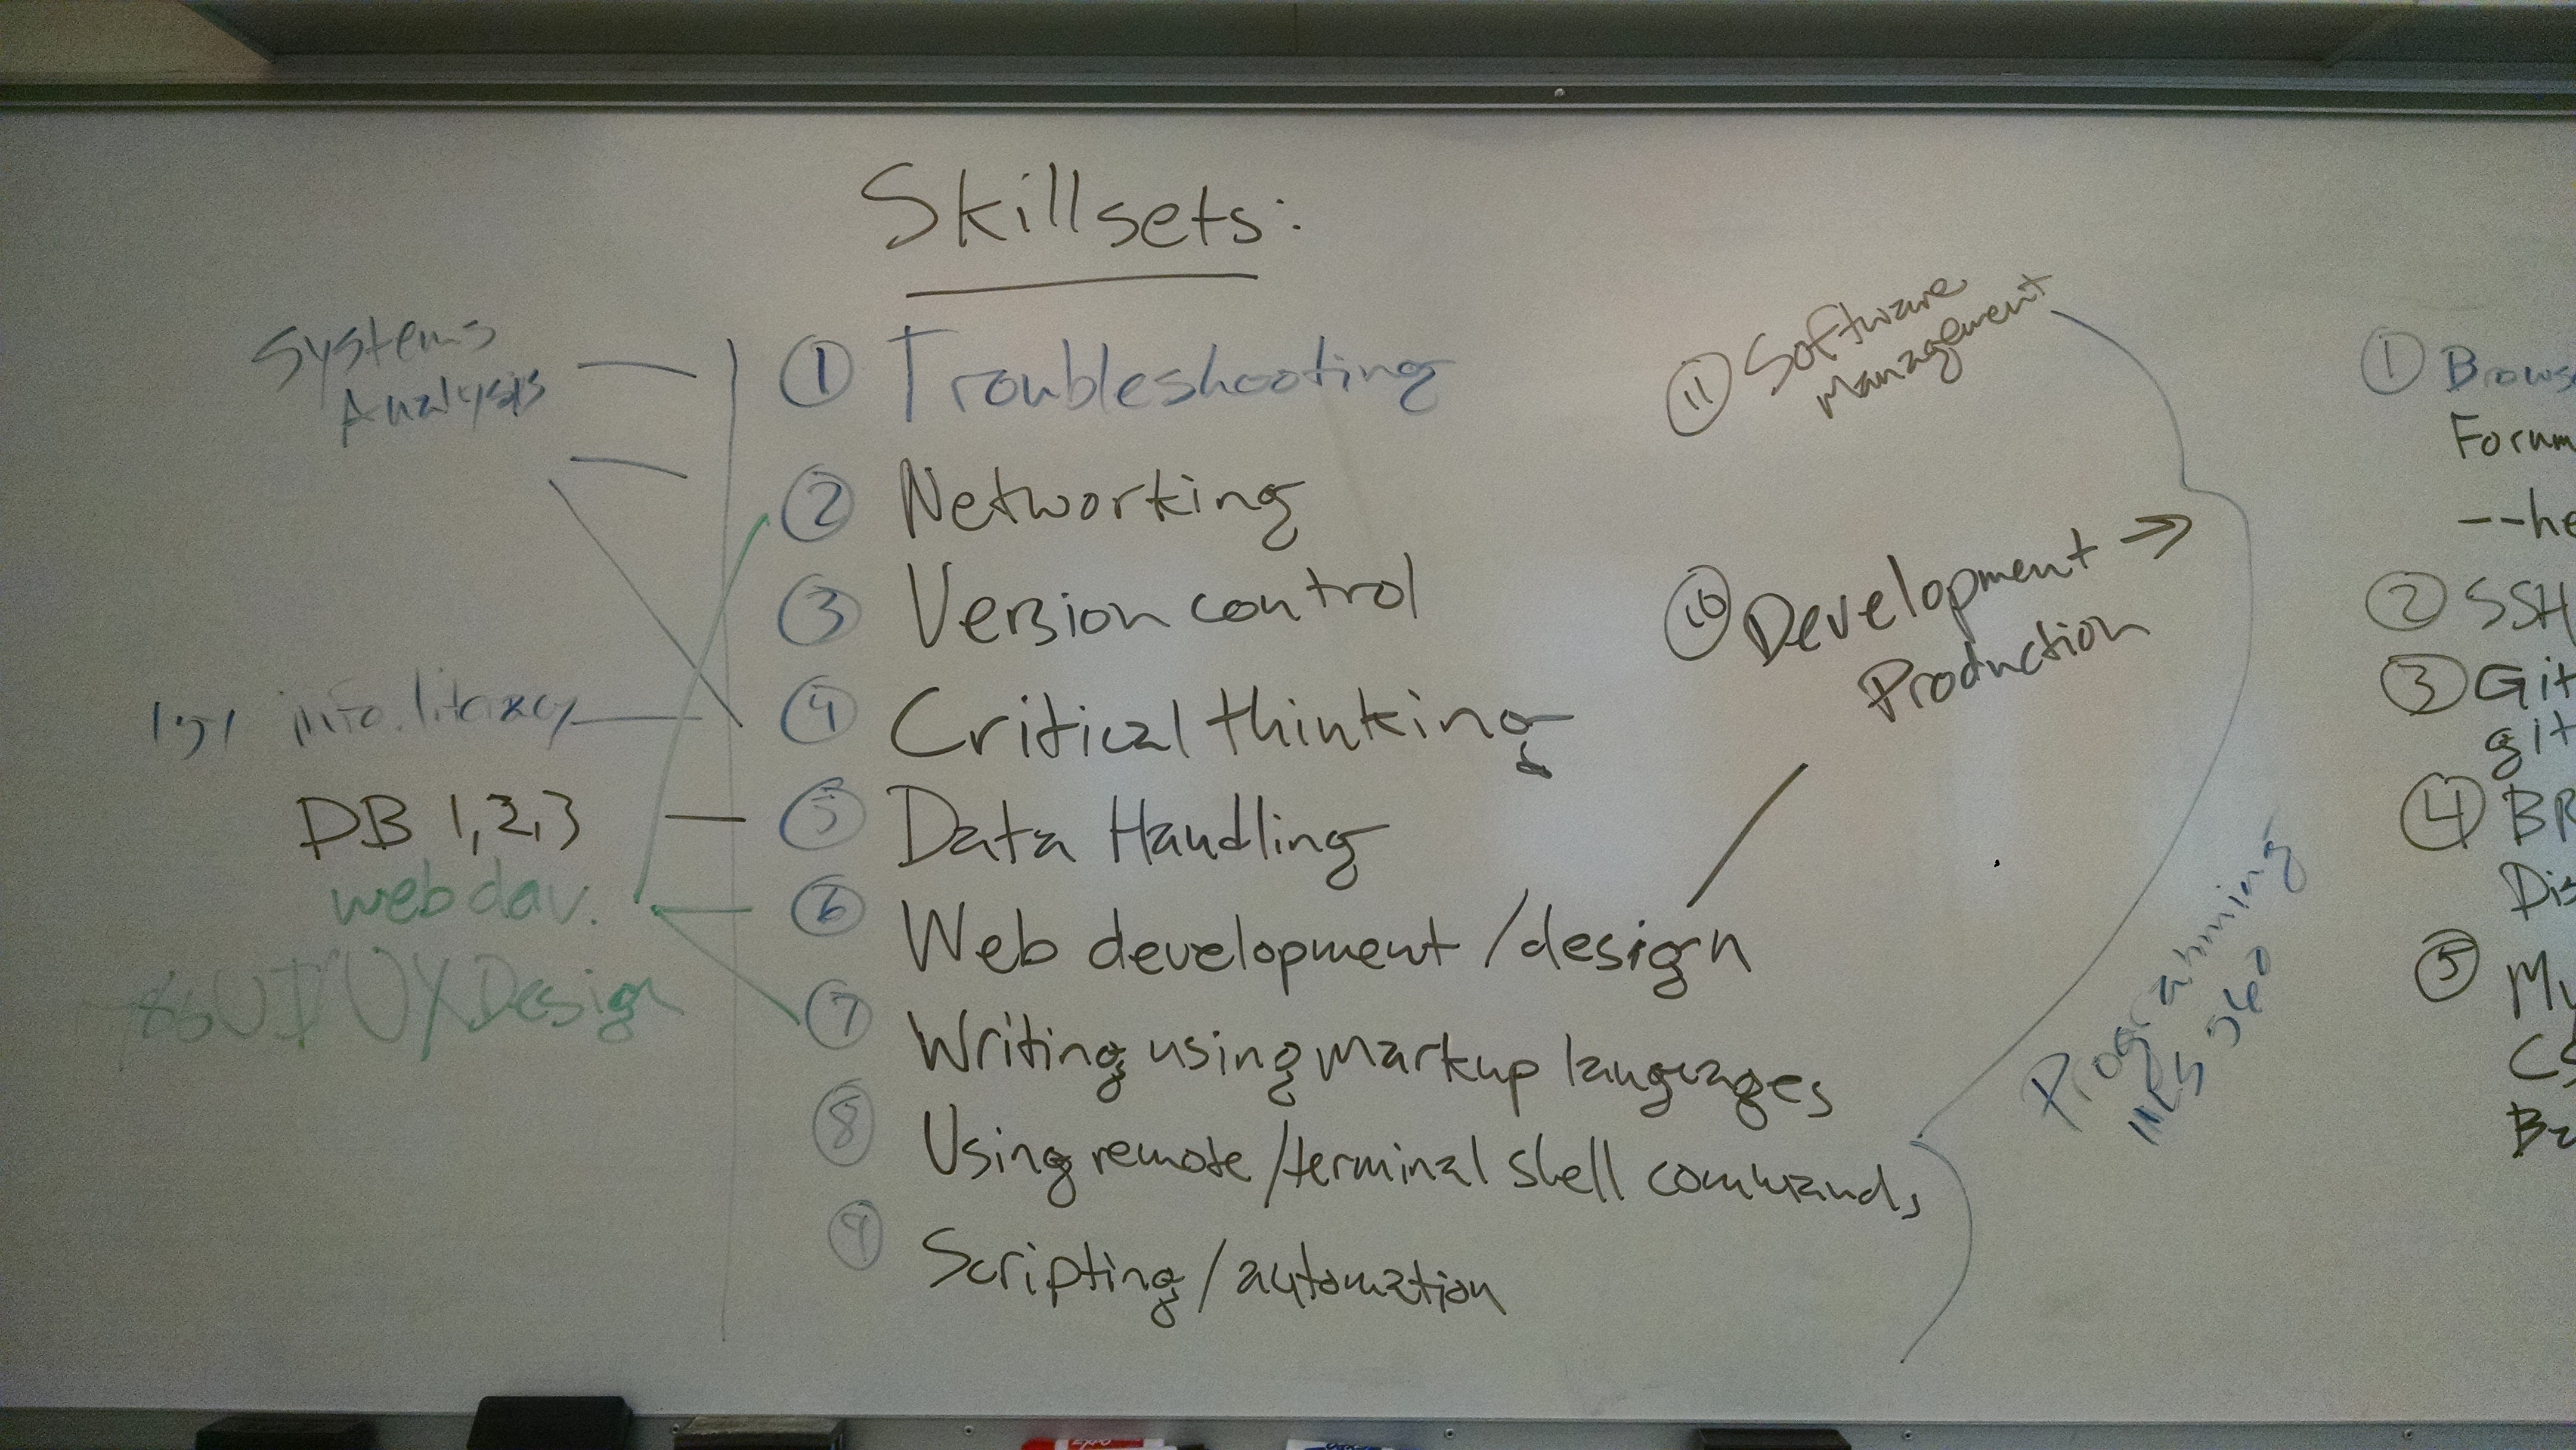 Skillsets:
Systems
Analysis
info. literacy
DB 1, 2, 3
web dav.
UI/UX Design
① Troubleshooting
② Networking
③ Version control
④ Critical thinking
⑤ Data Handling
⑥ Web development/design
⑦ Writing using markup languages
⑧ Using remote/terminal shell commands
⑨ Scripting/automation
⑪ Software
Management
⑩ Development →
Production
Programming
①
--he
② SSH
③ Git
git
④ BR
⑤